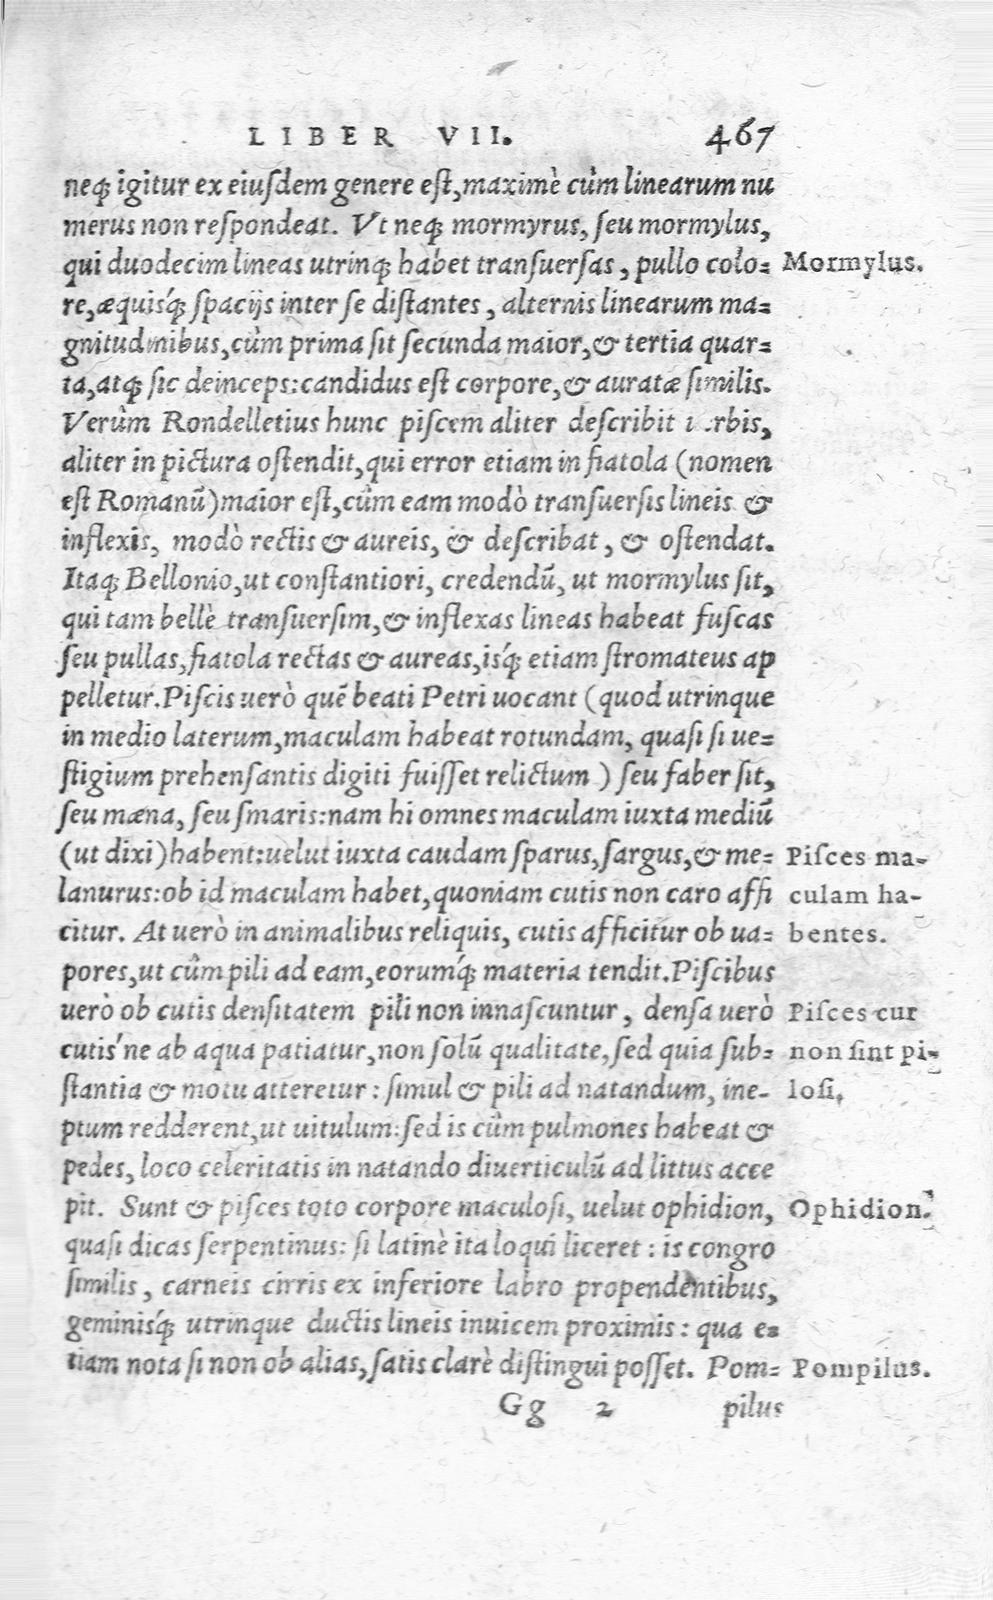 LIBER VII. 467
neq; igitur ex eiuſdem genere eſt, maximè cùm linearum nu
merus non reſpondeat. Vt neq; mormyrus, ſeu mormylus,
qui duodecim lineas utrinq; habet tranſuerſas, pullo colo= Mormylus.
re, æquisq́; ſpacijs inter ſe diſtantes, alternis linearum ma=
gnitudinibus, cùm prima ſit ſecunda maior, & tertia quar=
ta, atq; ſic deinceps: candidus eſt corpore, & auratæ ſimilis.
Verùm Rondelletius hunc piſcem aliter deſcribit
aliter in pictura oſtendit, qui error etiam in fiatola (nomen
eſt Romanū) maior eſt, cùm eam modò tranſuersis lineis &
inflexis, modò rectis & aureis, & deſcribat, & oſtendat.
Itaq; Bellonio, ut conſtantiori, credendū, ut mormylus ſit,
qui tam bellè tranſuerſim, & inflexas lineas habeat fuſcas
ſeu pullas, fiatola rectas & aureas, isq́; etiam ſtromateus ap
pelletur. Piſcis uerò quē beati Petri uocant (quod utrinque
in medio laterum, maculam habeat rotundam, quaſi ſi ue=
ſtigium prehenſantis digiti fuiſſet relictum) ſeu faber ſit,
ſeu mæna, ſeu ſmaris: nam hi omnes maculam iuxta mediū
(ut dixi) habent: uelut iuxta caudam ſparus, ſargus, & me= Piſces ma-
lanurus: ob id maculam habet, quoniam cutis non caro affi culam ha-
citur. At uerò in animalibus reliquis, cutis afficitur ob ua= bentes.
pores, ut cùm pili ad eam, eorumq́; materia tendit. Piſcibus
uerò ob cutis denſitatem pili non innaſcuntur, denſa uerò Piſces cur
cutis ne ab aqua patiatur, non ſolū qualitate, ſed quia ſub= non ſint pi-
ſtantia & motu attereretur: ſimul & pili ad natandum, ine- loſi.
ptum redderent, ut uitulum: ſed is cùm pulmones habeat &
pedes, loco celeritatis in natando diuerticulū ad littus acce
pit. Sunt & piſces toto corpore maculoſi, uelut ophidion, Ophidion.
quaſi dicas ſerpentinus: ſi latinè ita loqui liceret: is congro
ſimilis, carneis cirris ex inferiore labro propendentibus,
geminisq́; utrinque ductis lineis inuicem proximis: qua e=
tiam nota ſi non ob alias, ſatis clarè diſtingui poſſet. Pom= Pompilus.
Gg 2 pilus